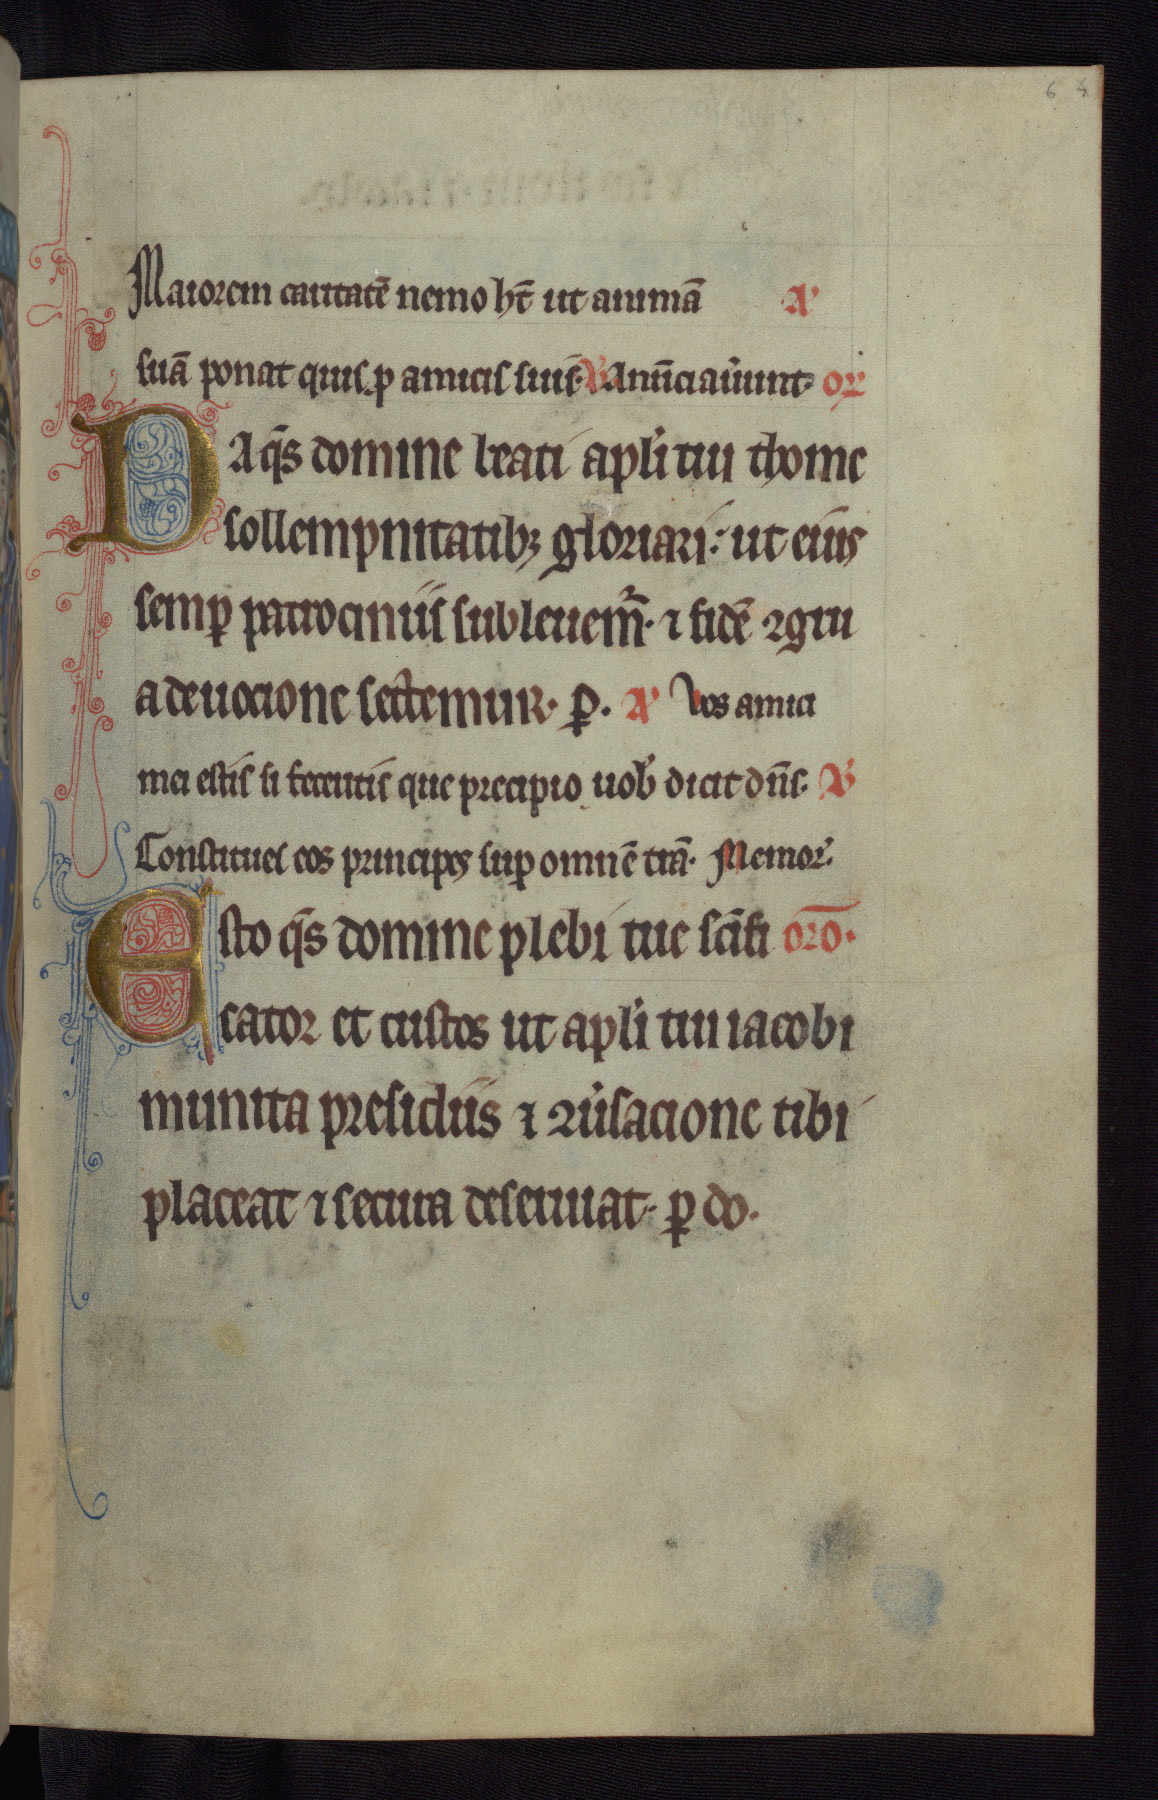 64
Maiorem caritatē nemo hr̄t ut animā A᷎
suā ponat quis p̱ amicis suis· V᷎ Anūciauˀunt· or̄
Da qs̄ domine beati aplˀi tui thome
sollempnitatibꝫ gloriari: ut eiusˀ
semꝑ patrociniis subleuem̄ˀ· ⁊ fidē ꝯgru
a deuocione sectemur· ꝑ· A᷎ Vos amici
mei estis si feceritis que precipio uobˀ dicit dn̄s· V᷎
Constitues eos principes suꝑ omnē trā· Memorˀ·
Esto qs̄ domine plebi tue sc̄ifi oro̅·
cator et custos ut aplˀi tui iacobi
munita presidiis ⁊ ꝯuˀsacione tibi
placeat ⁊ secura deseruiat· ꝑ do·